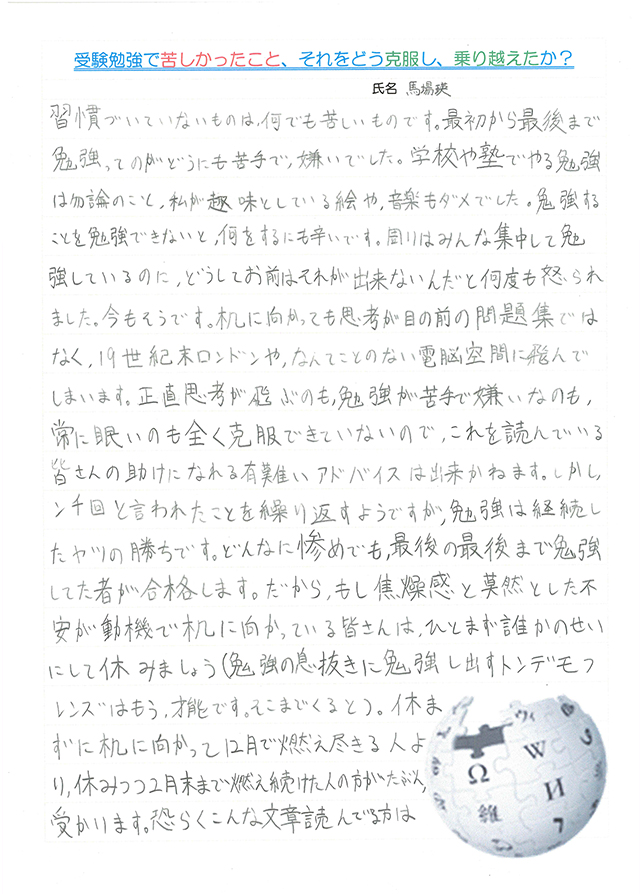 受験勉強で苦しかったこと、それをどう克服し、乗り越えたか？
氏名 馬場瑛
習慣づいていないものは、何でも苦しいものです。最初から最後まで
勉強ってのがどうにも苦手で、嫌いでした。学校や塾でやる勉強
は勿論のこと、私が趣味としている絵や、音楽もダメでした。勉強する
ことを勉強できないと、何をするにも辛いです。周りはみんな集中して勉
強しているのに、どうしてお前はそれが出来ないんだと何度も怒られ
ました。今もそうです。机に向かっても思考が目の前の問題集では
なく、19世紀末ロンドンや、なんてことのない電脳空間に飛んで
しまいます。正直思考が飛ぶのも、勉強が苦手で嫌いなのも、
常に眠いのも全く克服できていないので、これを読んでいる
皆さんの助けになれる有難いアドバイスは出来かねます。しかし、
ン千回と言われたことを繰り返すようですが、勉強は継続し
たヤツの勝ちです。どんなに惨めでも、最後の最後まで勉強
してた者が合格します。だから、もし焦燥感と莫然とした不
安が動機で机に向かっている皆さんは、ひとまず誰かのせい
にして休みましょう(勉強の息抜きに勉強し出すトンデモフ
レンズはもう、才能です。そこまでくると)。休ま
ずに机に向かって12月で燃え尽きる人よ
り、休みつつ2月末まで燃え続けた人の方がたぶん、
受かります。恐らくこんな文章読んでる方は
Ω
W
И
維
ウィ
7